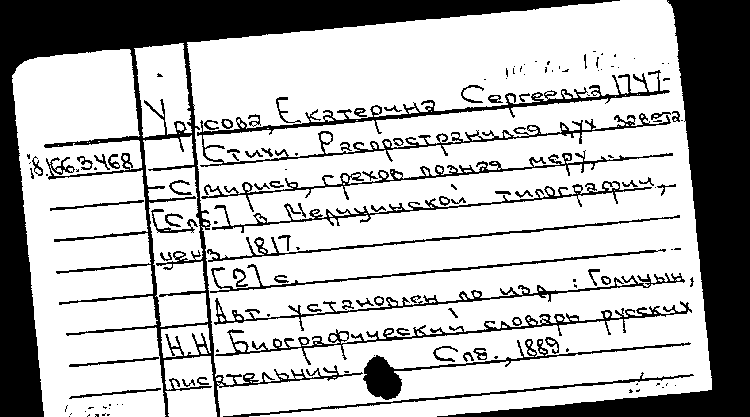 Урусова, Екатерина Сергеевна, 1747-
18.166.3.468 Стихи. Распространился дух завета
- Смирись, грехов познав меру,...
[Спб.], в Медицинской типографии,
ценз. 1817.
[2] с.
Авт. установлен по изд.: Голицын,
Н.Н. Биографический словарь русских
писательниц. Спб., 1889.